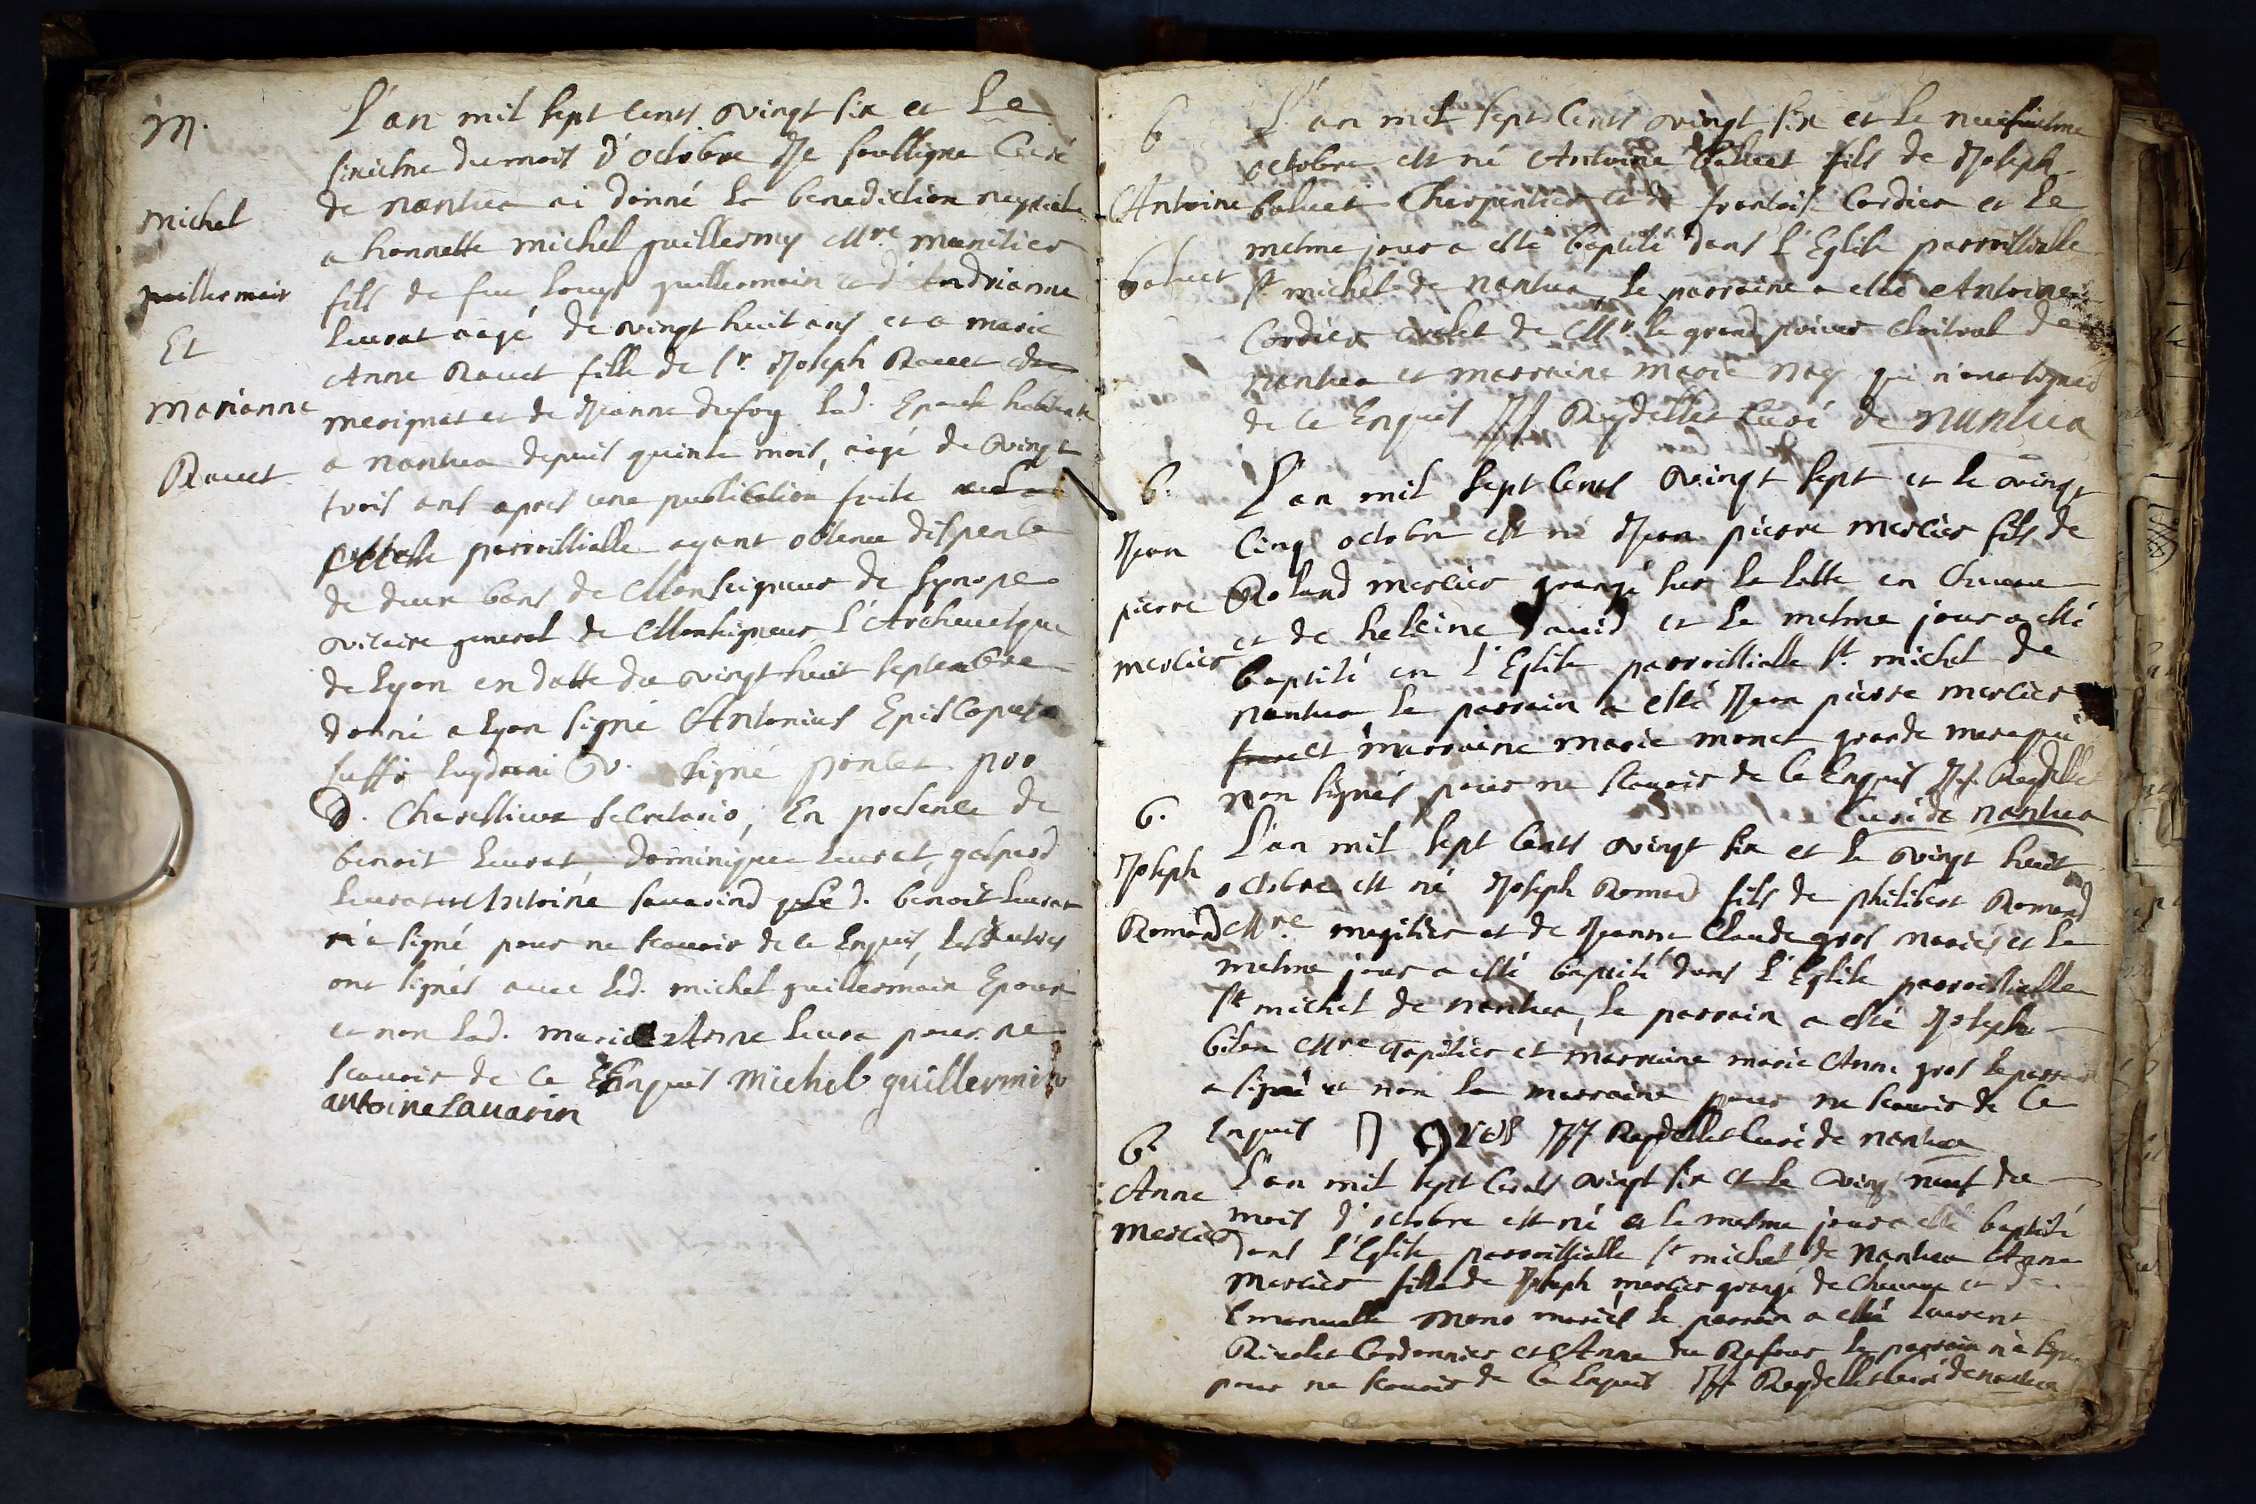 M.
Michel
guillermain
Et
Marianne
Ravet
L'an mil sept cents vingt six et Le
sixiesme du mois d'octobre Je soussigné Curé
de nantua ai donné la benediction nuptiale
a honnette michel guillermy Mre
fils de feu Louys guillermain et d'Andrianne
Leurat aagé de vingt huit ans et a marie
Anne Ravet fille de sr Joseph Ravet de
merignat et de Jeanne dufog lad. Epouse habitante
a nantua depuis quinte mois, aagé de vingt
trois ans apres une publication faite
parroissialle ayant obtenu dispense
de deux bans de Monseigneur de synope
vicaire general de Monseigneur L'Archevesque
de lyon en datte du vingt huit septembre
donné a lyon signé Antonius Episcopus
suff. lugduni V. signé ponset pro
D. Chavellieux secretario, En presence de
benoit Leurat, dominique Leurat, gaspard
Leurat et Antoine savarind led. benoit Leurat
n'a signé pour ne scavoir de ce Enquis, les autres
ont signés avec led. michel guillermain Epoux
et non lad. marie Anne Leura pour ne
scavoir de ce Enquis Michel guillermin
antoine savarin
b
Antoine
baluet
L'an mil sept Cents vingt six et le neufiesme
octobre est né Antoine baluet fils de Joseph
baluet Charpentier et de francoise Cordier et le
mesme jour a esté baptisé dans l'Eglise parroissialle
st michel de nantua, le parraine a esté Antoine
Cordier valet de Mr le grand prieur cloitral de
nantua et marraine marie Nay qui n'ont signés
de ce Enquis JJ Reydellet Curé de nantua
b.
Jean
pierre
mercier
L'an mil sept Cents vingt sept et le vingt
Cinq octobre est né Jean pierre mercier fils de
Roland mercier grangé sur la latte en Chevaux
et de heleine david et le mesme jour a esté
baptisé en l'Eglise parroissialle st. michel de
nantua, le parrain a esté Jean pierre mercier
frere et marraine marie monet grande mere qui
non signés pour ne scavoir de ce Enquis JJ. Reydellet
Curé de nantua
b.
Joseph
Romand
L'an mil sept Cents vingt six et le vingt huit
octobre est né Joseph Romand fils de philibert Romand
Mre megitier et de Jeanne Claude gros mariés et le
mesme jour a esté baptisé dans l'Eglise parroissialle
st michel de nantua, le parrain a esté Joseph
Mre Tapissier et marraine marie Anne gros le parrain
a signé et non la marraine pour ne scavoir de ce
Enquis JJ Reydellet Curé de nantua
b.
Anne
mercier
L'an mil sept Cents vingt six et le vingt neuf du
mois d'octobre est né et le mesme jour a esté baptisé
dans l'Eglise parroissialle st michel de Nantua Anne
mercier fille de Joseph mercier grangé de Chevaux et de
Emanuelle mono mariés le parrain a esté laurent
Rivolet Cordonnier et Anne du Rafour le parrain n'a signé
pour ne scavoir de ce Enquis JJ Reydellet Curé de nantua